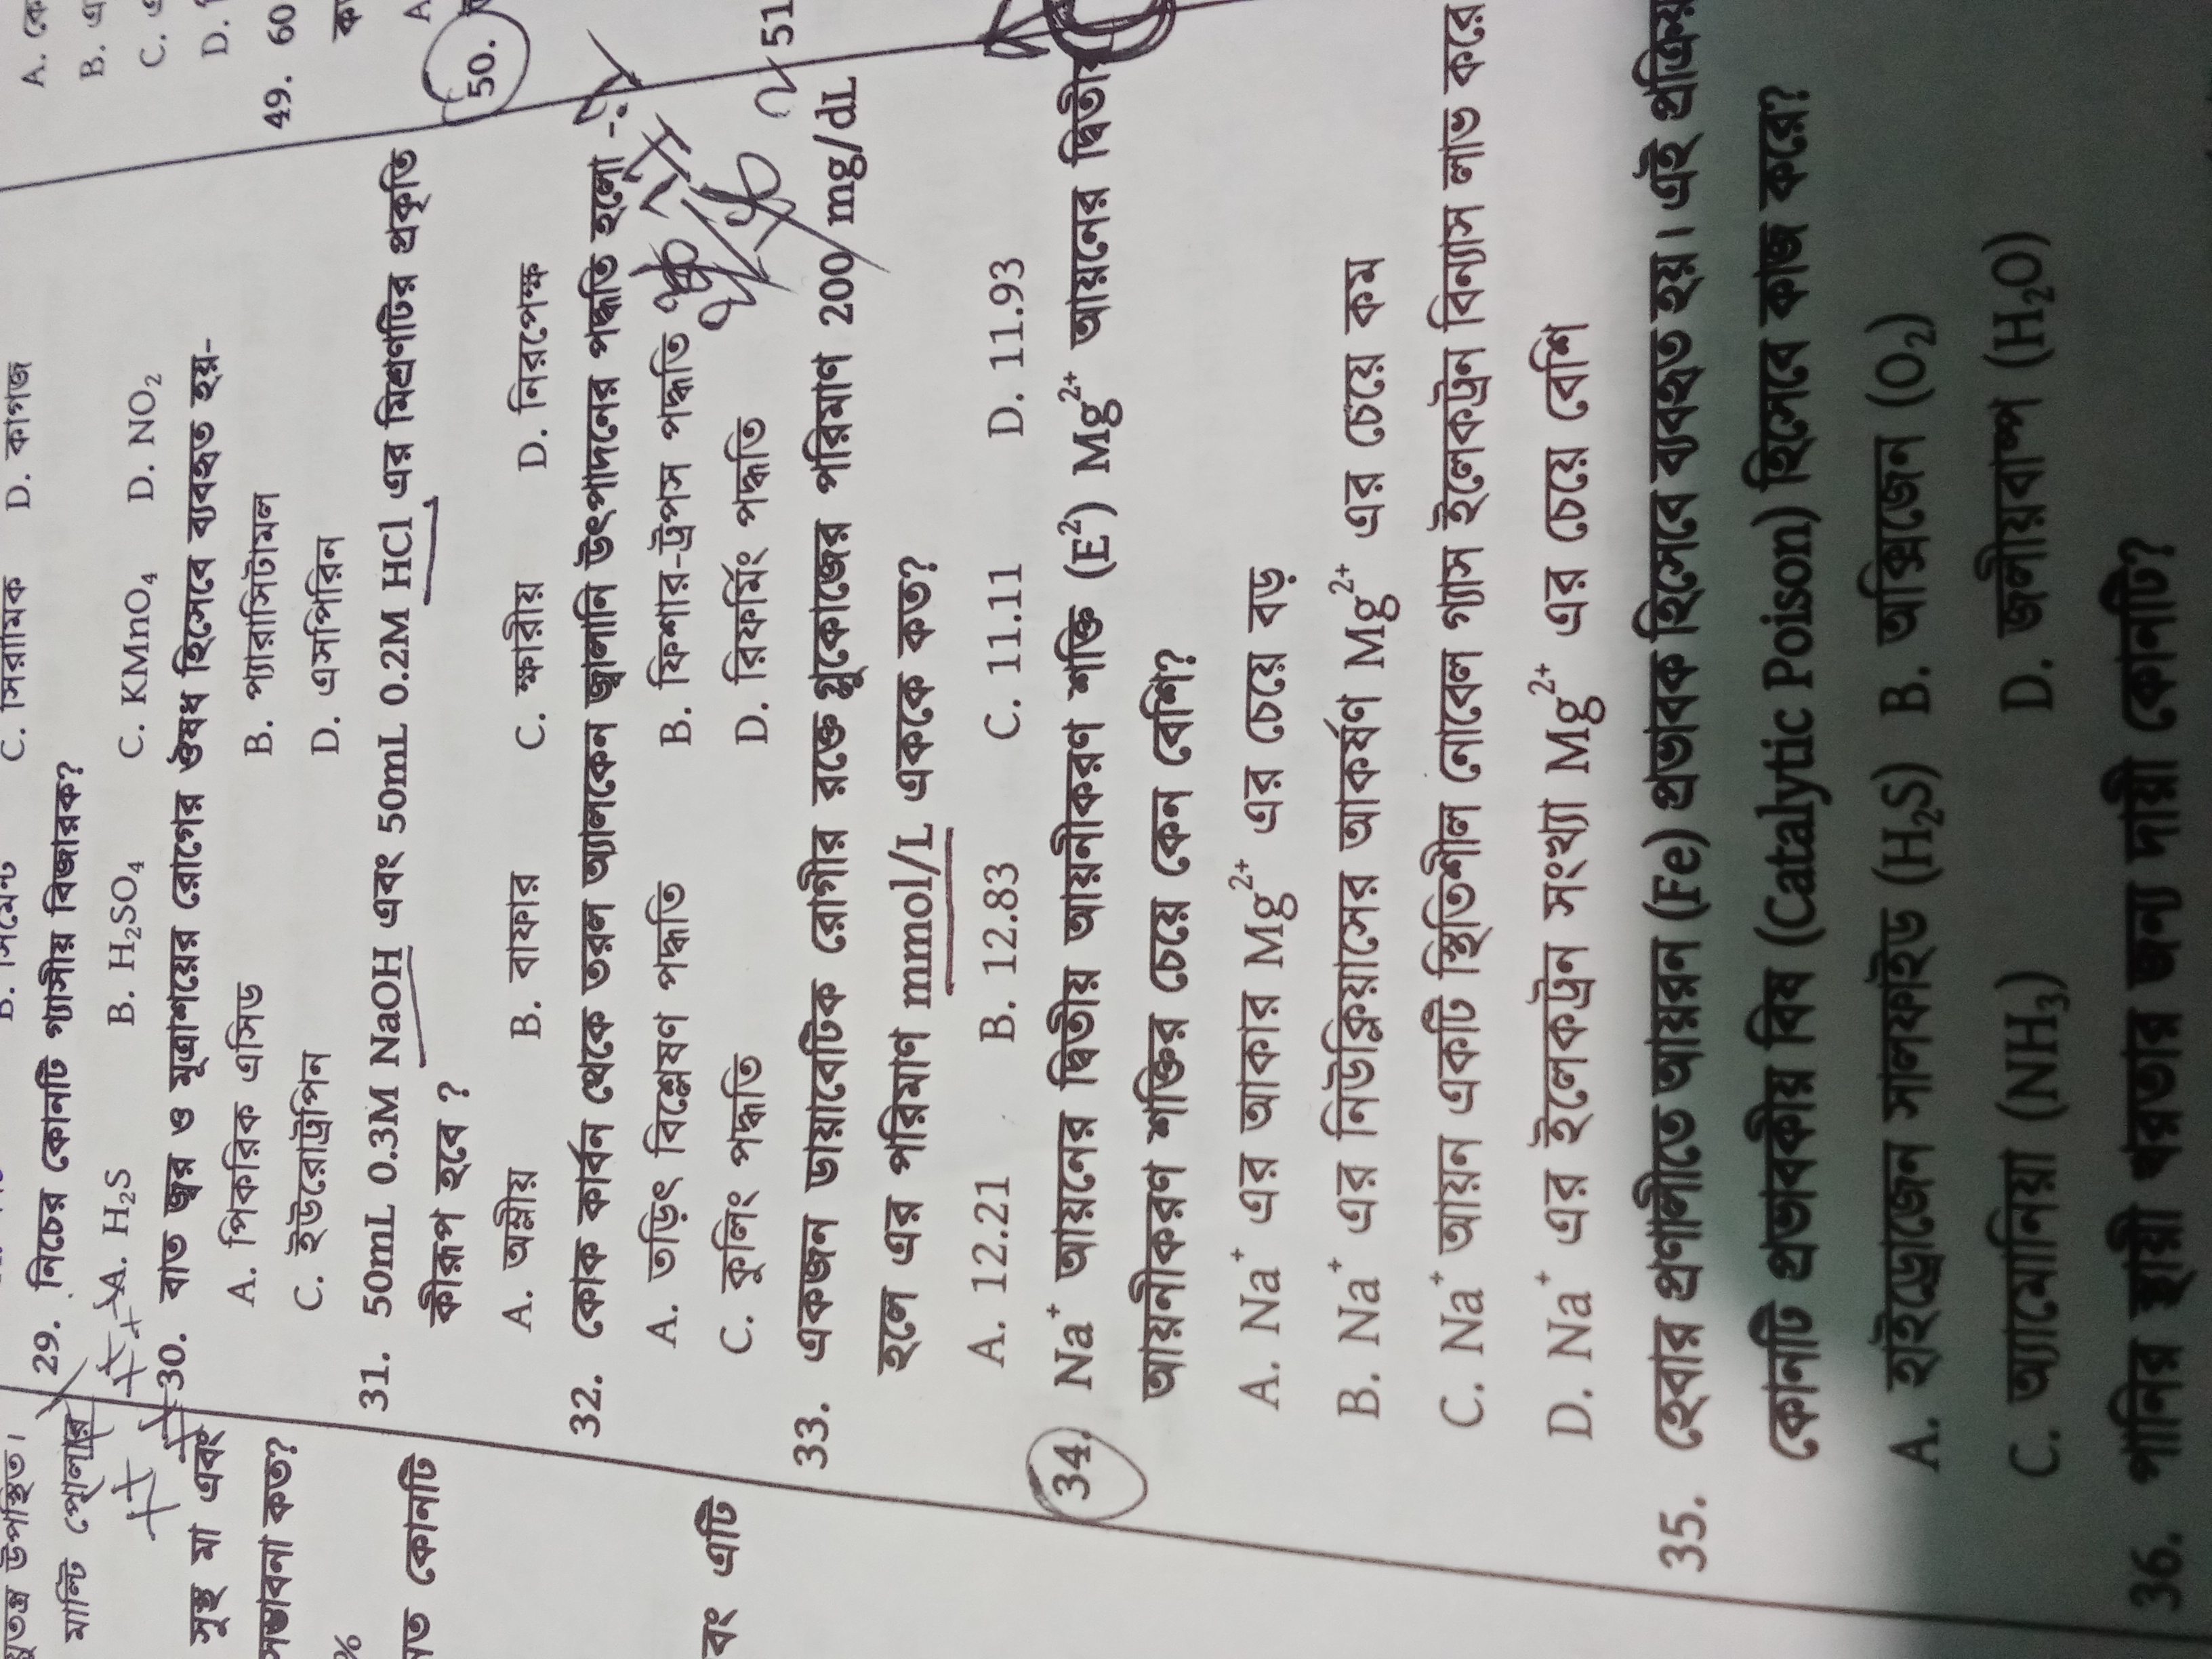 ্যুতন্ত্র উপস্থিত।
মাল্টি পোলার
সুস্থ মা এবং
সম্ভাবনা কত?
%
কোনটি
বং এটি
B. সিমেন্ট C. সিরামিক D. কাগজ
29. নিচের কোনটি গ্যাসীয় বিজারক?
A. H₂S B. H₂SO₄ C. KMnO₄ D. NO₂
30. বাত জ্বর ও মূত্রাশয়ের রোগের ঔষধ হিসেবে ব্যবহৃত হয়-
A. পিকরিক এসিড B. প্যারাসিটামল
C. ইউরোট্রপিন D. এসপিরিন
31. 50mL 0.3M NaOH এবং 50mL 0.2M HCl এর মিশ্রণটির প্রকৃতি
কীরূপ হবে ?
A. অম্লীয় B. বাফার C. ক্ষারীয় D. নিরপেক্ষ
32. কোক কার্বন থেকে তরল অ্যালকেন জ্বালানি উৎপাদনের পদ্ধতি হলো -
A. তড়িৎ বিশ্লেষণ পদ্ধতি B. ফিশার-ট্রপস পদ্ধতি
C. কুলিং পদ্ধতি D. রিফর্মিং পদ্ধতি
33. একজন ডায়াবেটিক রোগীর রক্তে গ্লুকোজের পরিমাণ 200 mg/dL
হলে এর পরিমাণ mmol/L এককে কত?
A. 12.21 B. 12.83 C. 11.11 D. 11.93
34. Na⁺ আয়নের দ্বিতীয় আয়নীকরণ শক্তি (E²) Mg²⁺ আয়নের দ্বিতীয়
আয়নীকরণ শক্তির চেয়ে কেন বেশি?
A. Na⁺ এর আকার Mg²⁺ এর চেয়ে বড়
B. Na⁺ এর নিউক্লিয়াসের আকর্ষণ Mg²⁺ এর চেয়ে কম
C. Na⁺ আয়ন একটি স্থিতিশীল নোবেল গ্যাস ইলেকট্রন বিন্যাস লাভ করে
D. Na⁺ এর ইলেকট্রন সংখ্যা Mg²⁺ এর চেয়ে বেশি
35. হেবার প্রণালীতে আয়রন (Fe) প্রভাবক হিসেবে ব্যবহৃত হয়। এই প্রক্রিয়
কোনটি প্রভাবকীয় বিষ (Catalytic Poison) হিসেবে কাজ করে?
A. হাইড্রোজেন সালফাইড (H₂S) B. অক্সিজেন (O₂)
C. অ্যামোনিয়া (NH₃) D. জলীয়বাষ্প (H₂O)
36. পানির স্থায়ী খরতার জন্য দায়ী কোনটি?
A.
B.
C.
D.
49. 60
50.
51